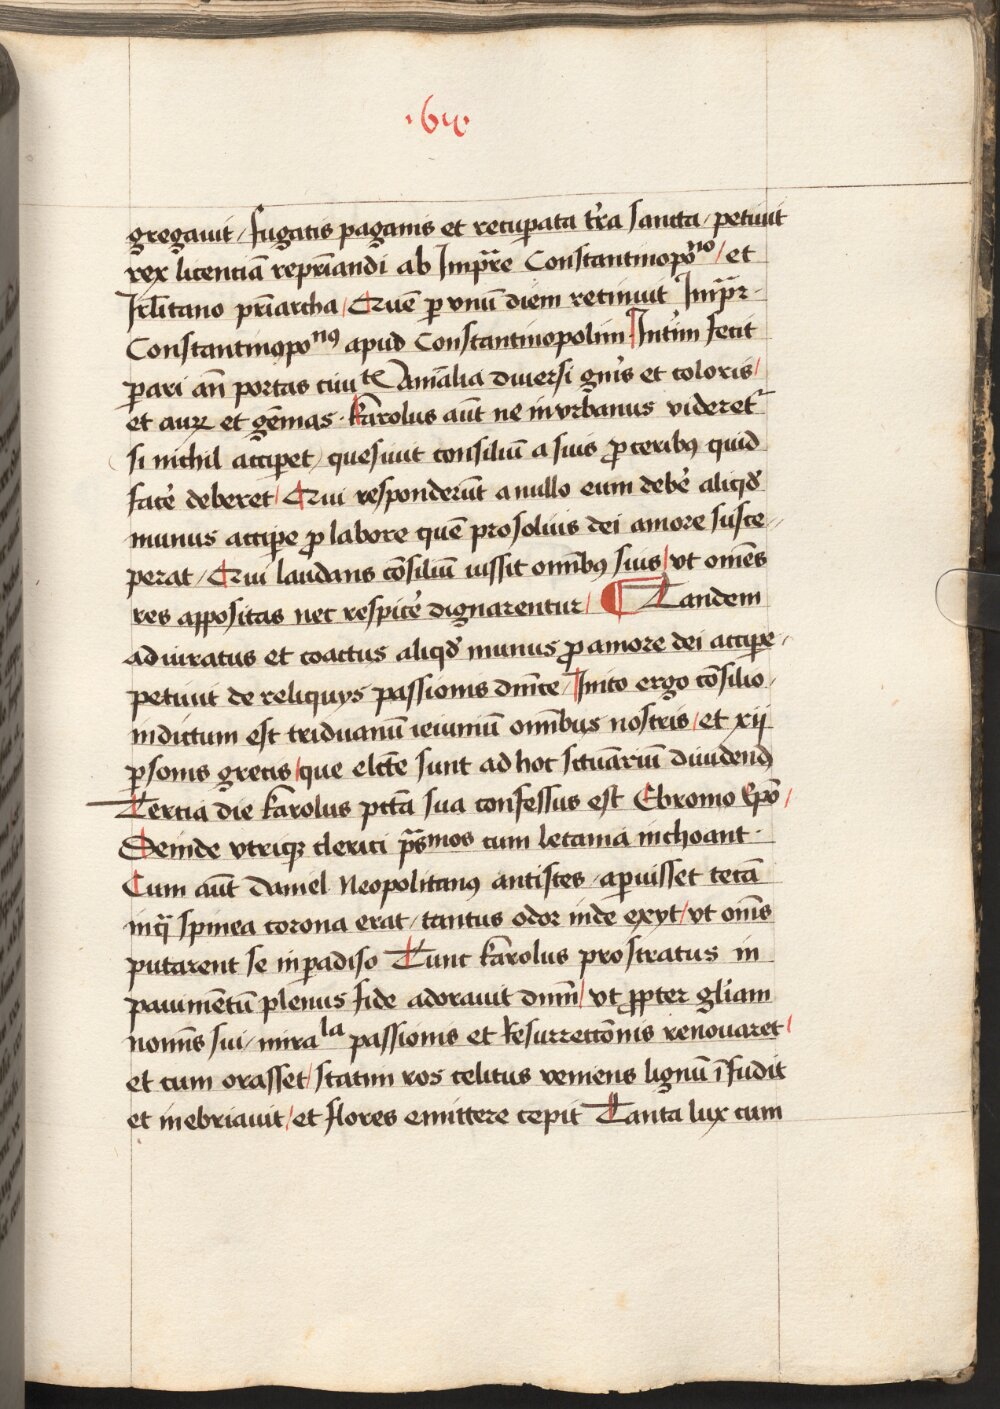 ·61·
gregauit / fugatis paganis et recuꝑata tr̄a sancta / petiuit
rex licenciā repr̄iandi ab Imp̄re Constantinopōno / et
Jrlītano pr̄iarcha / Quē ꝑ vnū diem retinuit Imp̄r·
Constantinopono apud Constantinopolim Int̄im fecit
ꝑari an̄ portas ciuite Animālia diuersi gn̄is et coloris /
et auꝝ et gēmas · karolus aūt ne invrbanus videret᷑
si nichil acciꝑet / quesiuit consiliū a suis ꝓceribꝰ quid
facēr deberet / Qui responderūt a nullo eum debēr aliqd̄
munus acciꝑe ꝓ labore quē pro solius dei amore susce-
perat / Qui laudans cōsiliū iussit omībꝰ suis / vt omēs
res appositas nec respicēr dignarentur / ¶ Tandem
adiuratus et coactus aliqd̄ munus ꝓ amore dei acciꝑe-
petiuit de reliquys passionis dnīce / Inito ergo cōsilio /
indictum est triduanū ieiuniū omībus nostris / et xij
ꝑsonis grecis / que elc̄te sunt ad hoc sctūariū diuidend̄
Tercia die karolus pctā sua confessus est Ebromo Ep̄o /
Deinde vtriqꝫ clerici p̄smos cum letania inchoant ·
Cum aūt Daniel Neopolitanꝰ antistes / aꝑuisset tecā
in q̄ spinea corona erat / tantus odor inde exyt / vt om̄s
putarent se in ꝑadiso Tunc karolus prostratus in
pauimētū plenus fide adorauit dnm̄ / vt ꝓpter glīam
nomīs sui / mirala passionis et Resurrectōnis renouaret /
et cum orasset / statim ros celitus veniens lignū īfudit
et inebriauit / et flores emittere cepit Tanta lux cum